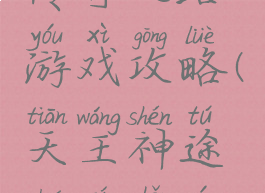 yóu xì gōng lüè
游戏攻略(
tiān wáng shén tú
天王神途